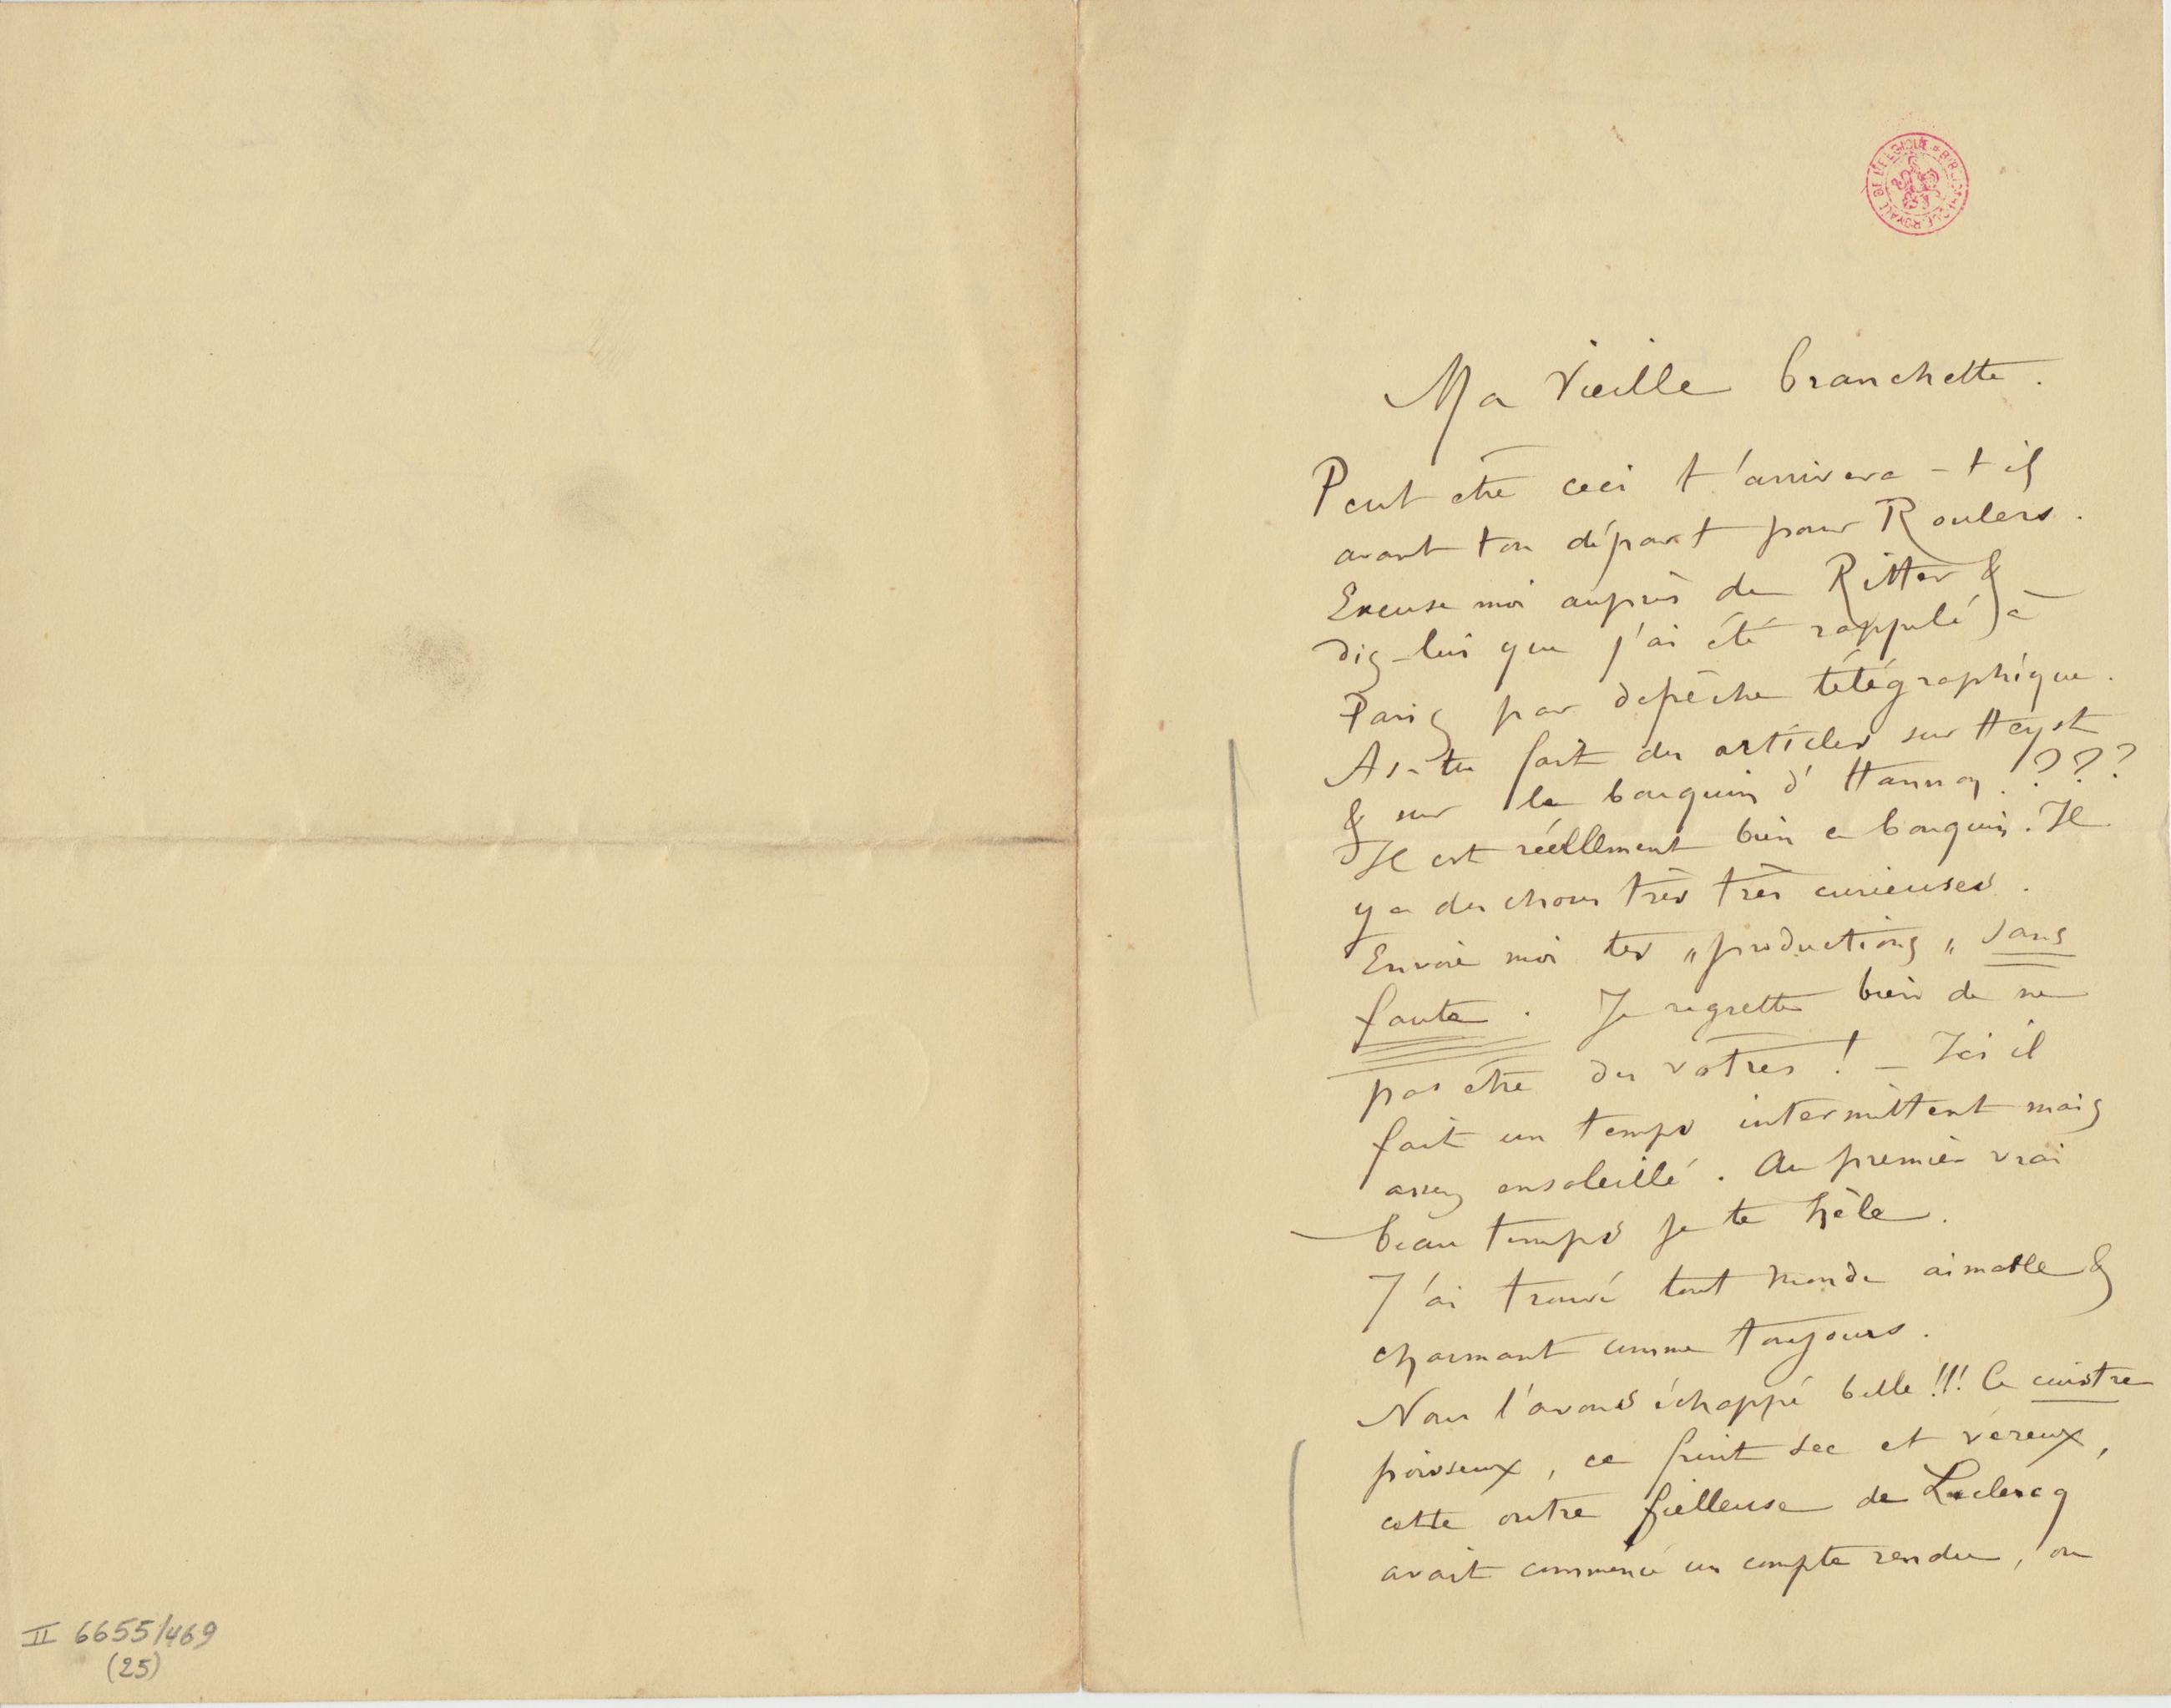 Ma Vieille branchette.
Peut être ceci t'arrivera-t il
avant ton départ pour Roulers.
Excuse moi auprès de Ritter &
dis-lui que j'ai été rappelé à
Paris par depêche télégraphique.
As-tu fait des articles sur Heyst
& sur le bouquin d'Hannon.???
Il est réellement bien ce bouquin. Il
y a des choses très très curieuses.
Envoie moi tes „productions„ sans
faute. Je regrette bien de ne
pas être des vôtres! – Ici il
fait un temps intermittent mais
assez ensoleillé. Au premier vrai
beau temps je te hèle.
J'ai trouvé tout monde aimable &
charmant comme toujours.
Nous l'avons échappé belle!!! Ce cuistre
poisseux, ce fruit sec et véreux,
cette outre fielleuse de Leclercq
avait commencé un compte rendu, ou
BIBLIOTHÈQUE ROYALE DE BELGIQUE
II 6655/469
(25)